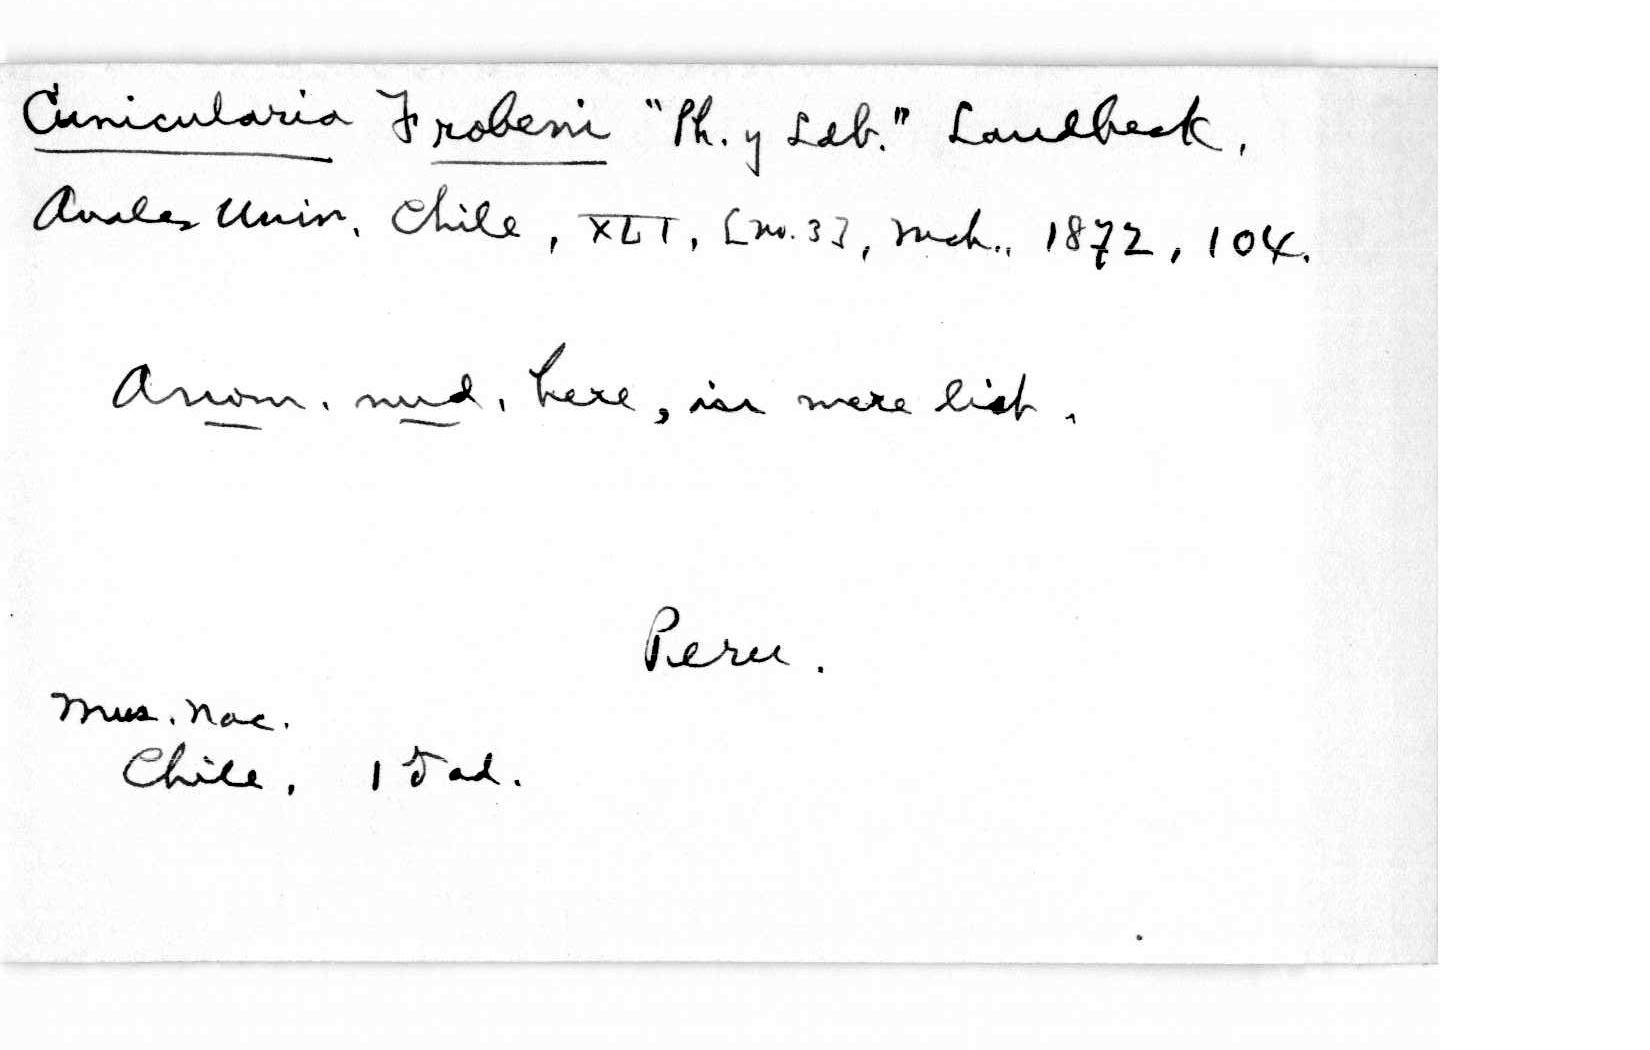 Cunicularia Frobeni "Ph. y Ldb." Landbeck,
Anales Univ. Chile, XLI, [no. 3], Mch., 1872, 104.
A nom. nud. here, in mere list.
Peru.
Mus. Nac.
Chile, 1 ♂ ad.